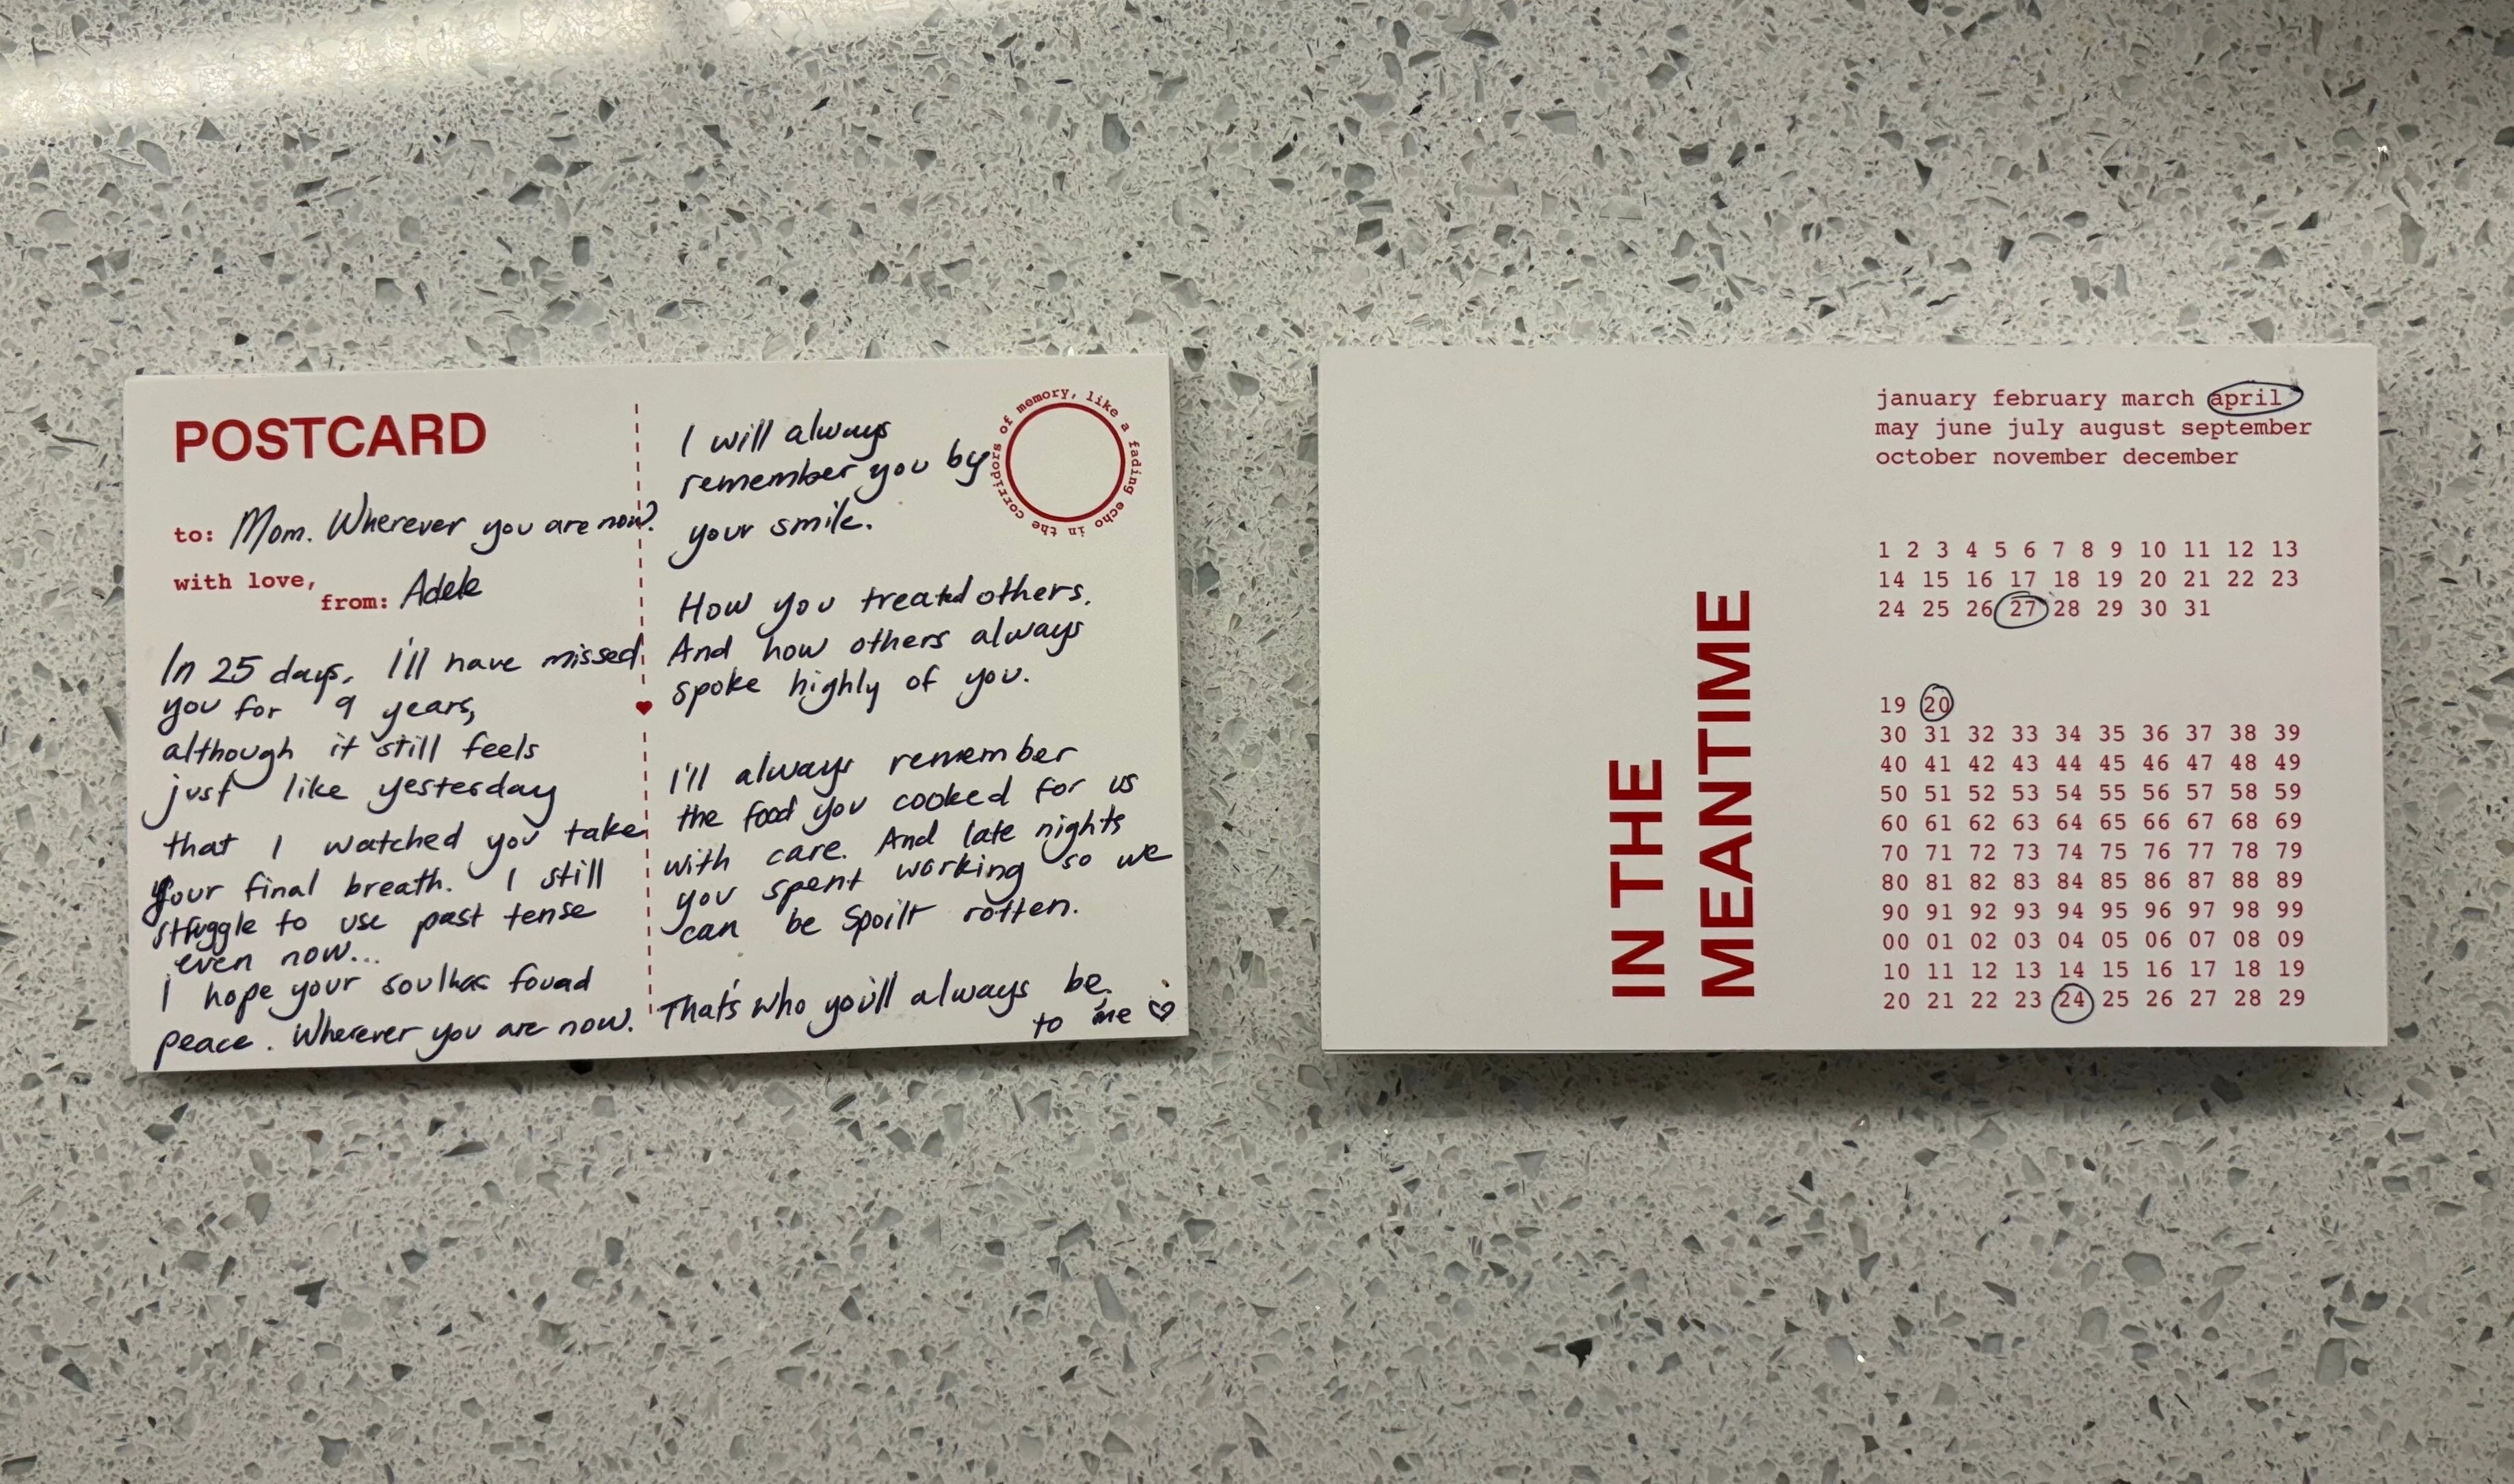 POSTCARD
to: Mom. Wherever you are now?
with love,
from: Adele
In 25 days, I'll have missed
you for 9 years,
although it still feels
just like yesterday
that I watched you take
your final breath. I still
struggle to use past tense
even now...
I hope your soul has found
peace. Wherever you are now.
I will always
remember you by
your smile.
How you treated others.
And how others always
spoke highly of you.
I'll always remember
the food you cooked for us
with care. And late nights
you spent working so we
can be spoilt rotten.
That's who you'll always be
to me
of memory, like a fading echo in the corridors
IN THE
MEANTIME
january february march april
may june july august september
october november december
1 2 3 4 5 6 7 8 9 10 11 12 13
14 15 16 17 18 19 20 21 22 23
24 25 26 27 28 29 30 31
19 20
30 31 32 33 34 35 36 37 38 39
40 41 42 43 44 45 46 47 48 49
50 51 52 53 54 55 56 57 58 59
60 61 62 63 64 65 66 67 68 69
70 71 72 73 74 75 76 77 78 79
80 81 82 83 84 85 86 87 88 89
90 91 92 93 94 95 96 97 98 99
00 01 02 03 04 05 06 07 08 09
10 11 12 13 14 15 16 17 18 19
20 21 22 23 24 25 26 27 28 29